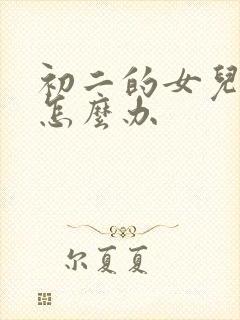 初二的女兒
怎麼办
尔夏夏